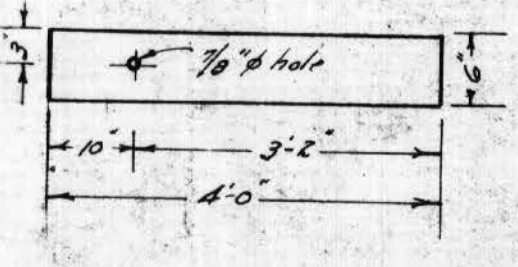 3"
7/8" φ hole
6"
10"
3'-2"
4'-0"